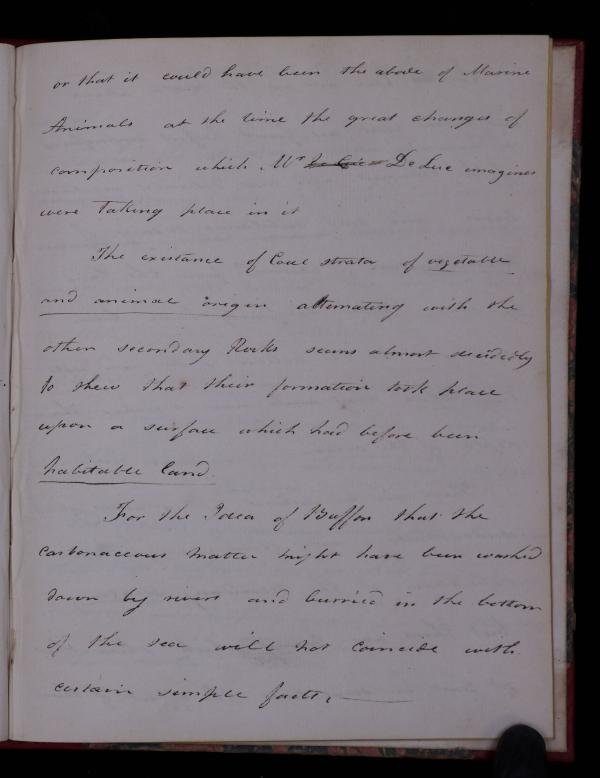 or that it could have been the abode of Marine
Animals at the time the great changes of
composition which Mr De Luc imagines
were taking place in it
The existance of Coal strata of vegetable
and animal origin alternating with the
other secondary Rocks seems almost decidedly
to shew that their formation took place
upon a surface which had before been
habitable land.
For the Idea of Buffon that the
carbonaceous matter might have been washed
down by rivers and burried in the bottom
of the sea will not coincide with
certain simple facts. —